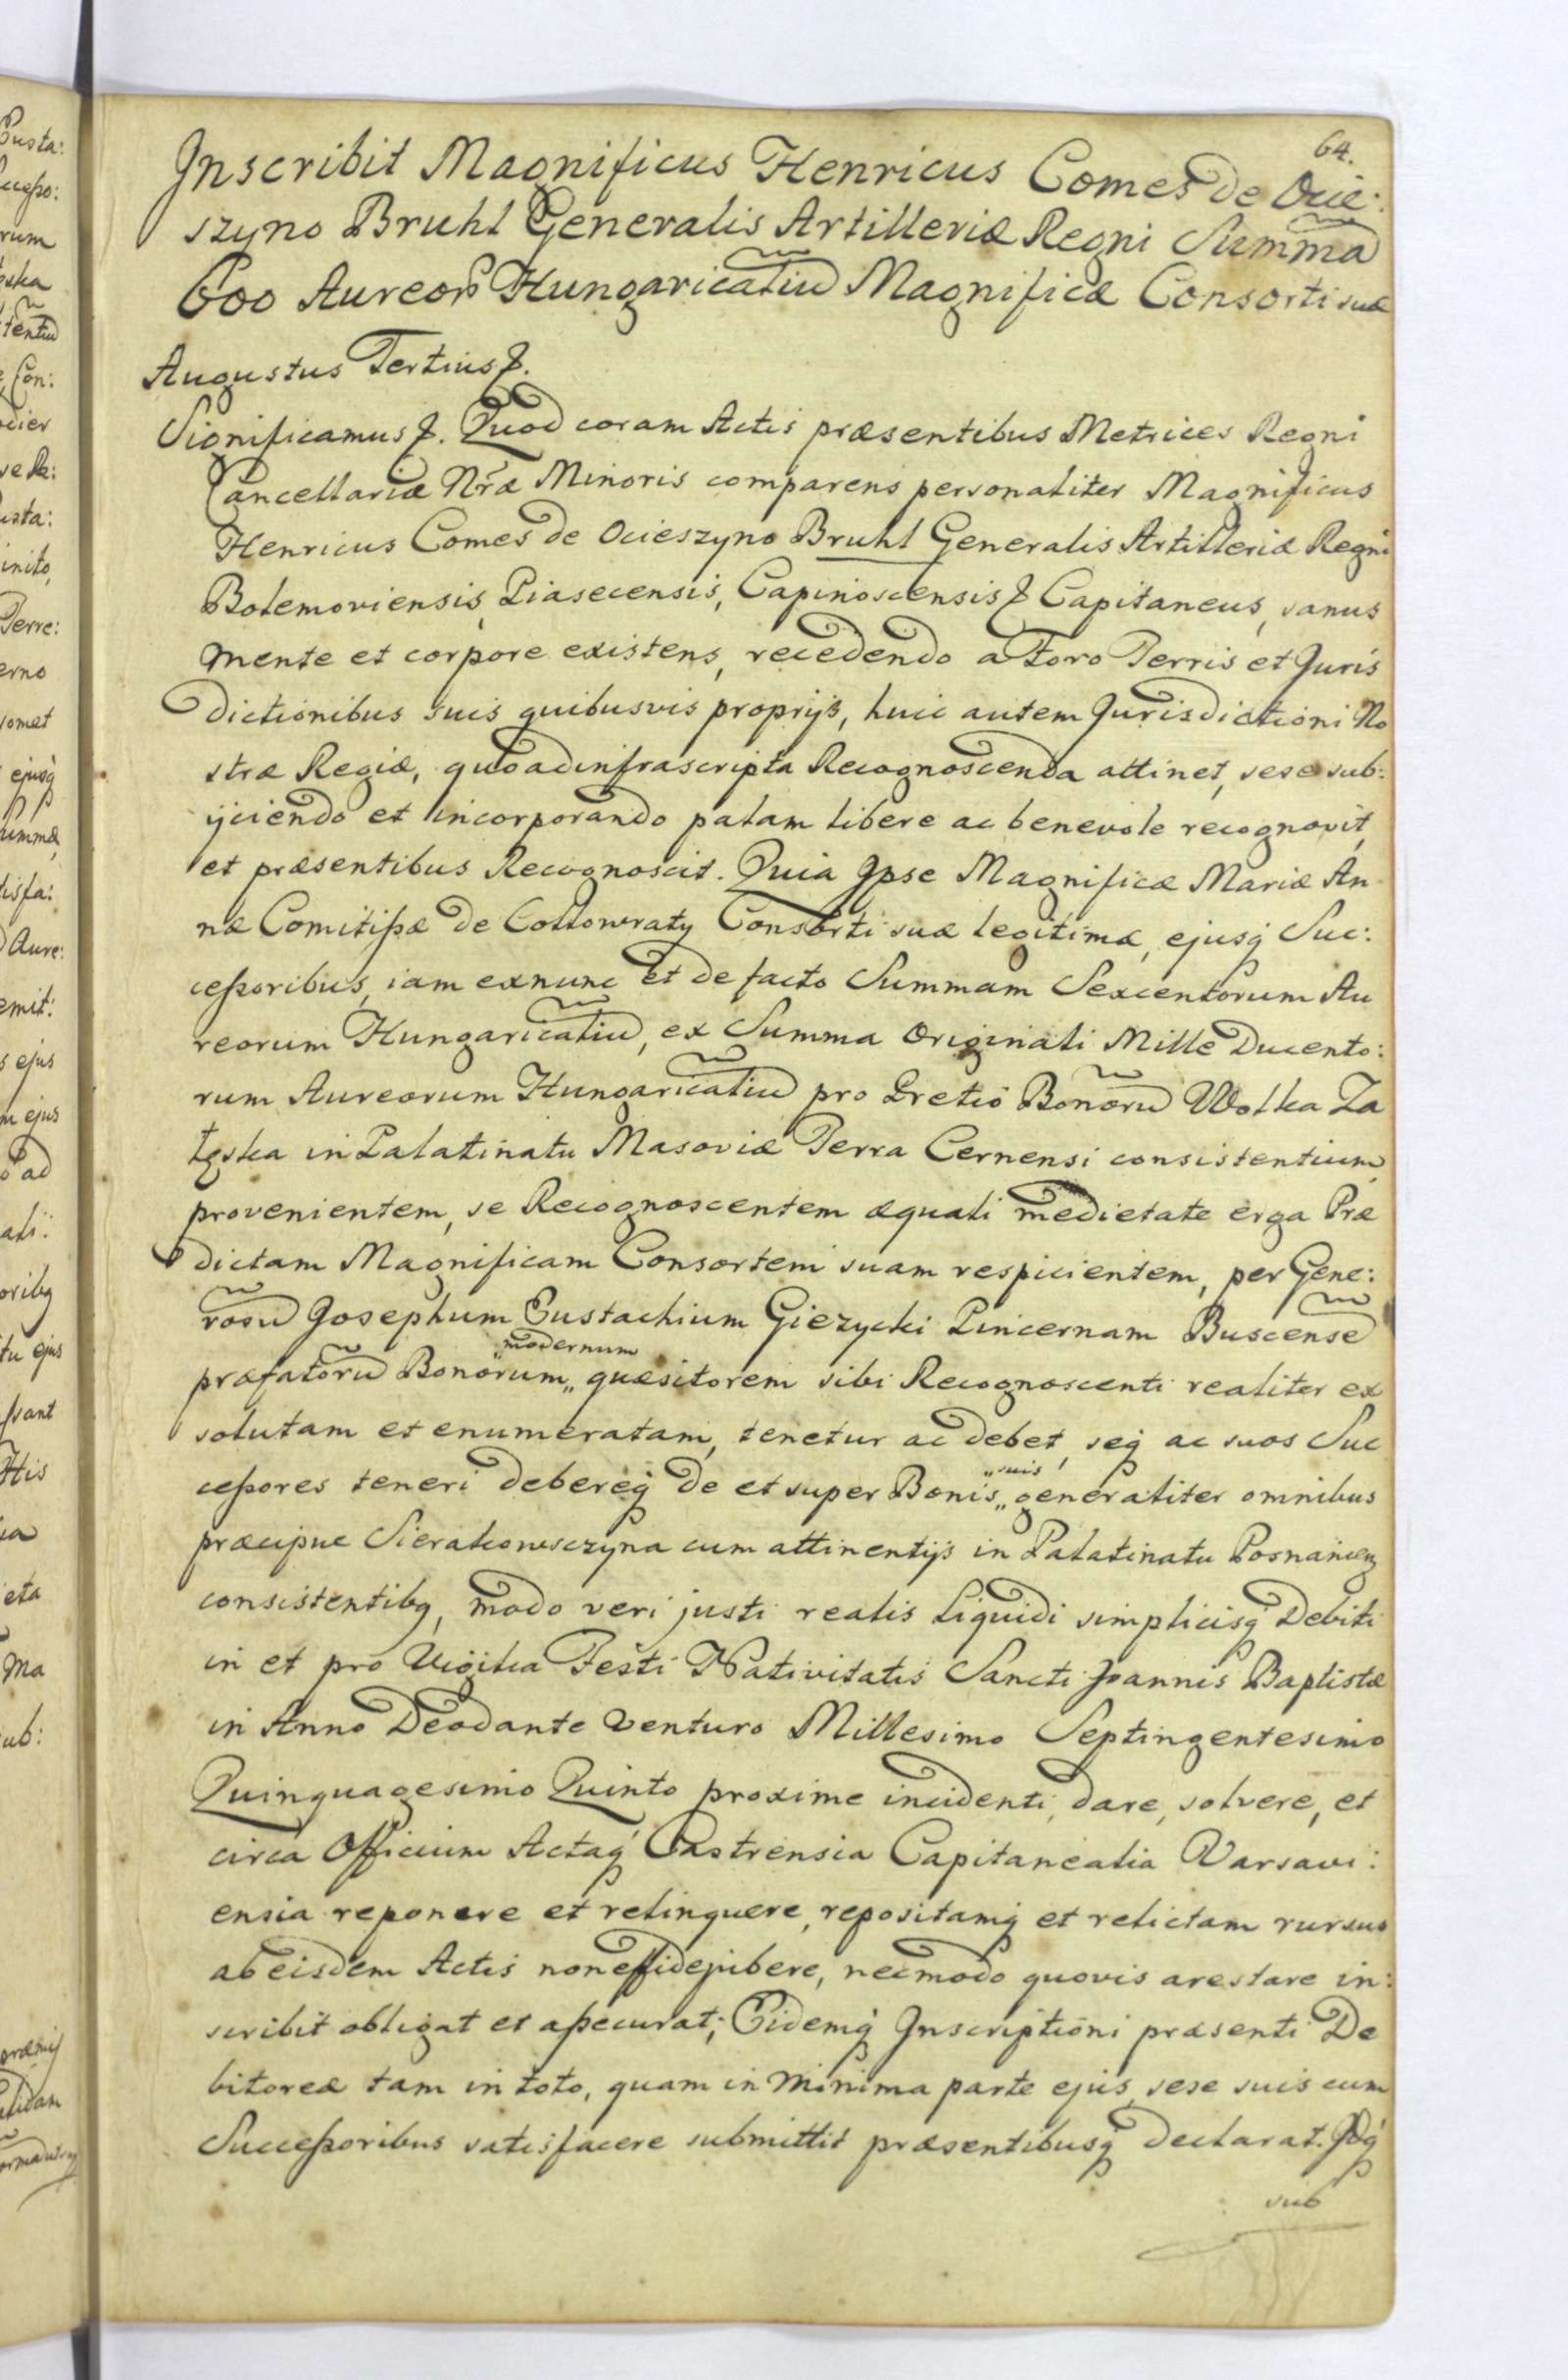 64.
Inscribit Magnificus Henricus Comes de Ocie:
szyno Bruhl Generalis Artilleriæ Regni Summã
600 Aureor Hungaricaliũ Magnificæ Consorti suæ
Augustus Tertius
Significamus Quod coram Actis præsentibus Metrices Regni
Cancellariæ Nræ Minoris comparens personaliter Magnificus
Henricus Comes de Ocieszyno Bruhl Generalis Artilleriæ Regni
Bolemoviensis, Piasecensis, Capinoscensis Capitaneus, sanus
mente et corpore existens, recedendo a Foro Terris et Juris
dictionibus suis quibusvis proprijs, huic autem Jurisdictioni No
stræ Regiæ, quo ad infrascripta Recognoscenda attinet, sese sub:
ijciendo et incorporando palam libere ac benevole recognovit,
et præsentibus Recognoscit. Quia Ipse Magnificæ Mariæ An
næ Comitißæ de Collowraty Consorti suæ legitimæ, ejusq́ Suc:
ceßoribus, iam exnunc et de facto Summam Sexcentorum Au
reorum Hungaricaliũ, ex Summa Originali Mille Ducento:
rum Aureorum Hungaricaliũ pro Pretio Bonorũ Wolka Za
łęska in Palatinatu Masoviæ Terra Cernensi consistentium,
provenientem, se Recognoscentem æquali medietate erga Præ
dictam Magnificam Consortem suam respicientem, per Gene:
rosũ Josephum Eustachium Giezycki Pincernam Buscensẽ
modernum
præfatorũ Bonorum,, quæsitorem sibi Recognoscenti realiter ex
solutam et enumeratam, tenetur ac debet, seq́ ac suos Suc
ceßores teneri debereq́ de et super Bonis,, generaliter omnibus
,,suis
præcipue Sierakowsczyna cum attinentijs in Palatinatu Posnanien
consistentibq, modo veri justi realis Liquidi simplicisq́ Debiti
in et pro Vigilia Festi Nativitatis Sancti Joannis Baptistæ
in Anno Deodante Venturo Millesimo Septingentesimo
Quinquagesimo Quinto proxime incidenti, dare, solvere, et
circa Officium Actaq́ Castrensia Capitanealia Varsavi:
ensia reponere et relinquere, repositamq́ et relictam rursus
ab eisdem Actis non effidejubere, nec modo quovis arestare in:
scribit obligat et aßecurat; Eidemq́ Inscriptioni præsenti De
bitoreæ tam in toto, quam in minima parte ejus, sese suis cum
Succeßoribus satisfacere submittit præsentibusq́ declarat. Idq́
sub